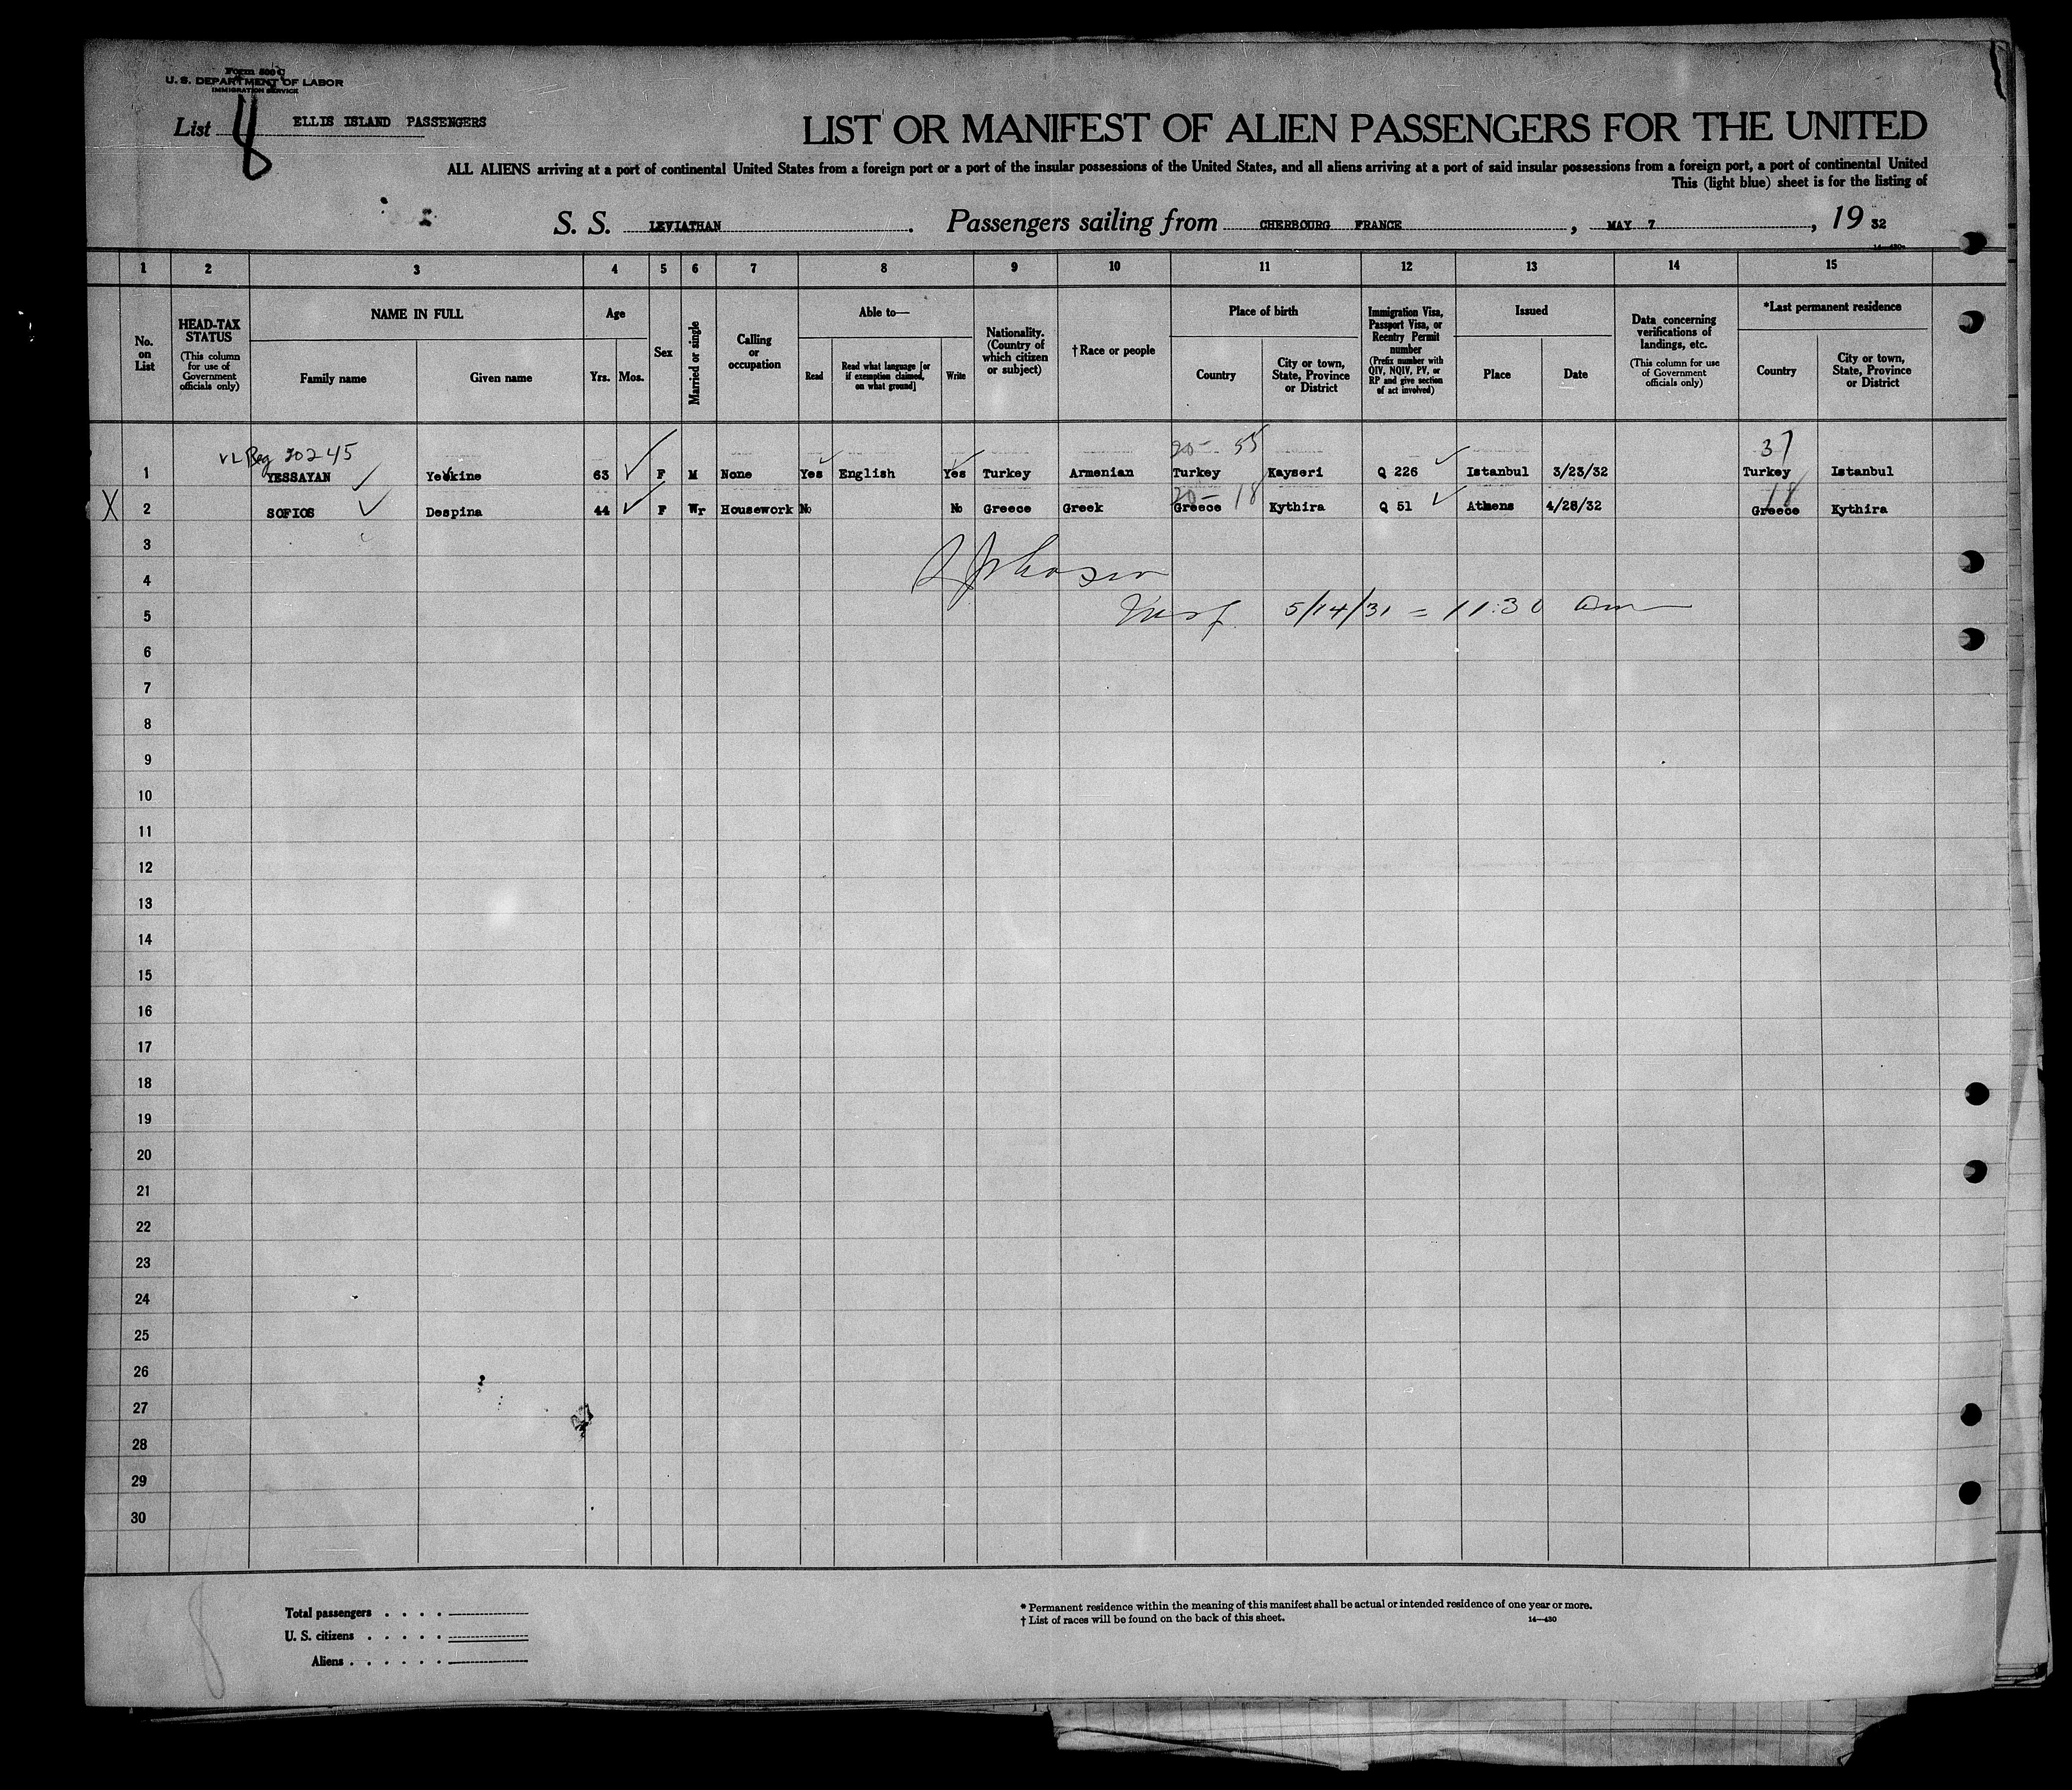 Form 500 C
U. S. DEPARTMENT OF LABOR
IMMIGRATION SERVICE
List 8 ELLIS ISLAND PASSENGERS
LIST OR MANIFEST OF ALIEN PASSENGERS FOR THE UNITED
ALL ALIENS arriving at a port of continental United States from a foreign port or a port of the insular possessions of the United States, and all aliens arriving at a port of said insular possessions from a foreign port, a port of continental United
This (light blue) sheet is for the listing of
S. S. LEVIATHAN. Passengers sailing from CHERBOURG FRANCE, MAY 7, 19 32
1 2 3 4 5 6 7 8 9 10 11 12 13 14 15
No. on List
HEAD-TAX STATUS
(This column for use of Government officials only)
NAME IN FULL
Family name
Given name
Age
Yrs.
Mos.
Sex
Married or single
Calling or occupation
Able to—
Read
Read what language [or if exemption claimed, on what ground]
Write
Nationality. (Country of which citizen or subject)
†Race or people
Place of birth
Country
City or town, State, Province or District
Immigration Visa, Passport Visa, or Reentry Permit number
(Prefix number with QIV, NQIV, PV, or RP and give section of act involved)
Issued
Place
Date
Data concerning verifications of landings, etc.
(This column for use of Government officials only)
*Last permanent residence
Country
City or town, State, Province or District
VL Reg 30245 20- 55 37
1 YESSAYAN 63 F M None Yes English Yes Turkey Armenian Turkey Kayseri Q 226 Istanbul 3/23/32 Turkey Istanbul
20- 18 18
X 2 SOFIOS Despina 44 F Wr Housework No No Greece Greek Greece Kythira Q 51 Athens 4/28/32 Greece Kythira
3
4
5 Insp. 5/14/31 = 11:30 am
6
7
8
9
10
11
12
13
14
15
16
17
18
19
20
21
22
23
24
25
26
27
28
29
30
8
Total passengers . . . .
U. S. citizens . . . . .
Aliens . . . . . .
* Permanent residence within the meaning of this manifest shall be actual or intended residence of one year or more.
† List of races will be found on the back of this sheet.
14—430